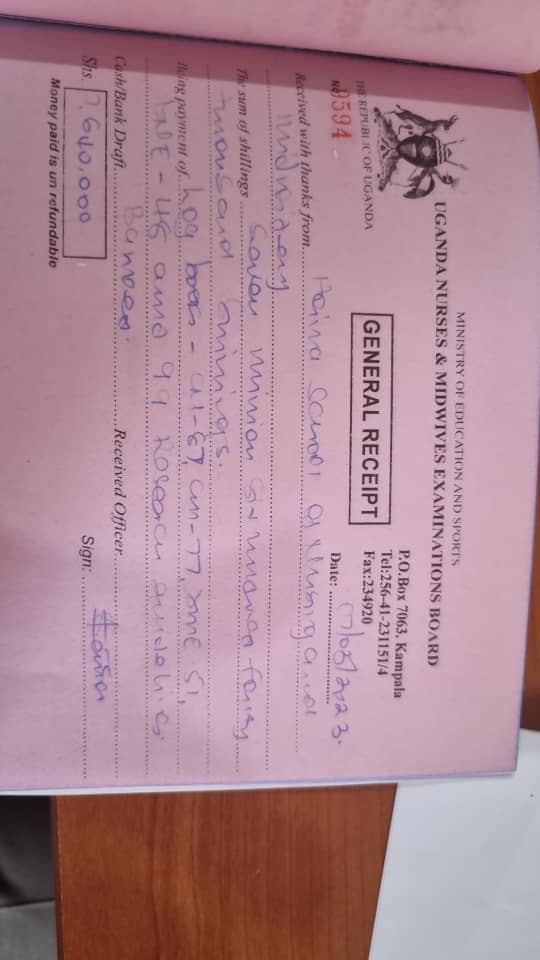 MINISTRY OF EDUCATION AND SPORTS
UGANDA NURSES & MIDWIVES EXAMINATIONS BOARD
THE REPUBLIC OF UGANDA
P.O.Box 7063, Kampala
Tel:256-41-231151/4
Fax:234920
GENERAL RECEIPT
No 9594
Date: 17/08/2023.
Received with thanks from School of Nursing and
Midwifery
The sum of shillings Seven million six hundred forty
thousand shillings.
Being payment of log books - 67, 77, 51,
48 and 99 Research guidelines
Cash/Bank Draft Received Officer
Shs. 7,640,000 Sign:
Money paid is un refundable